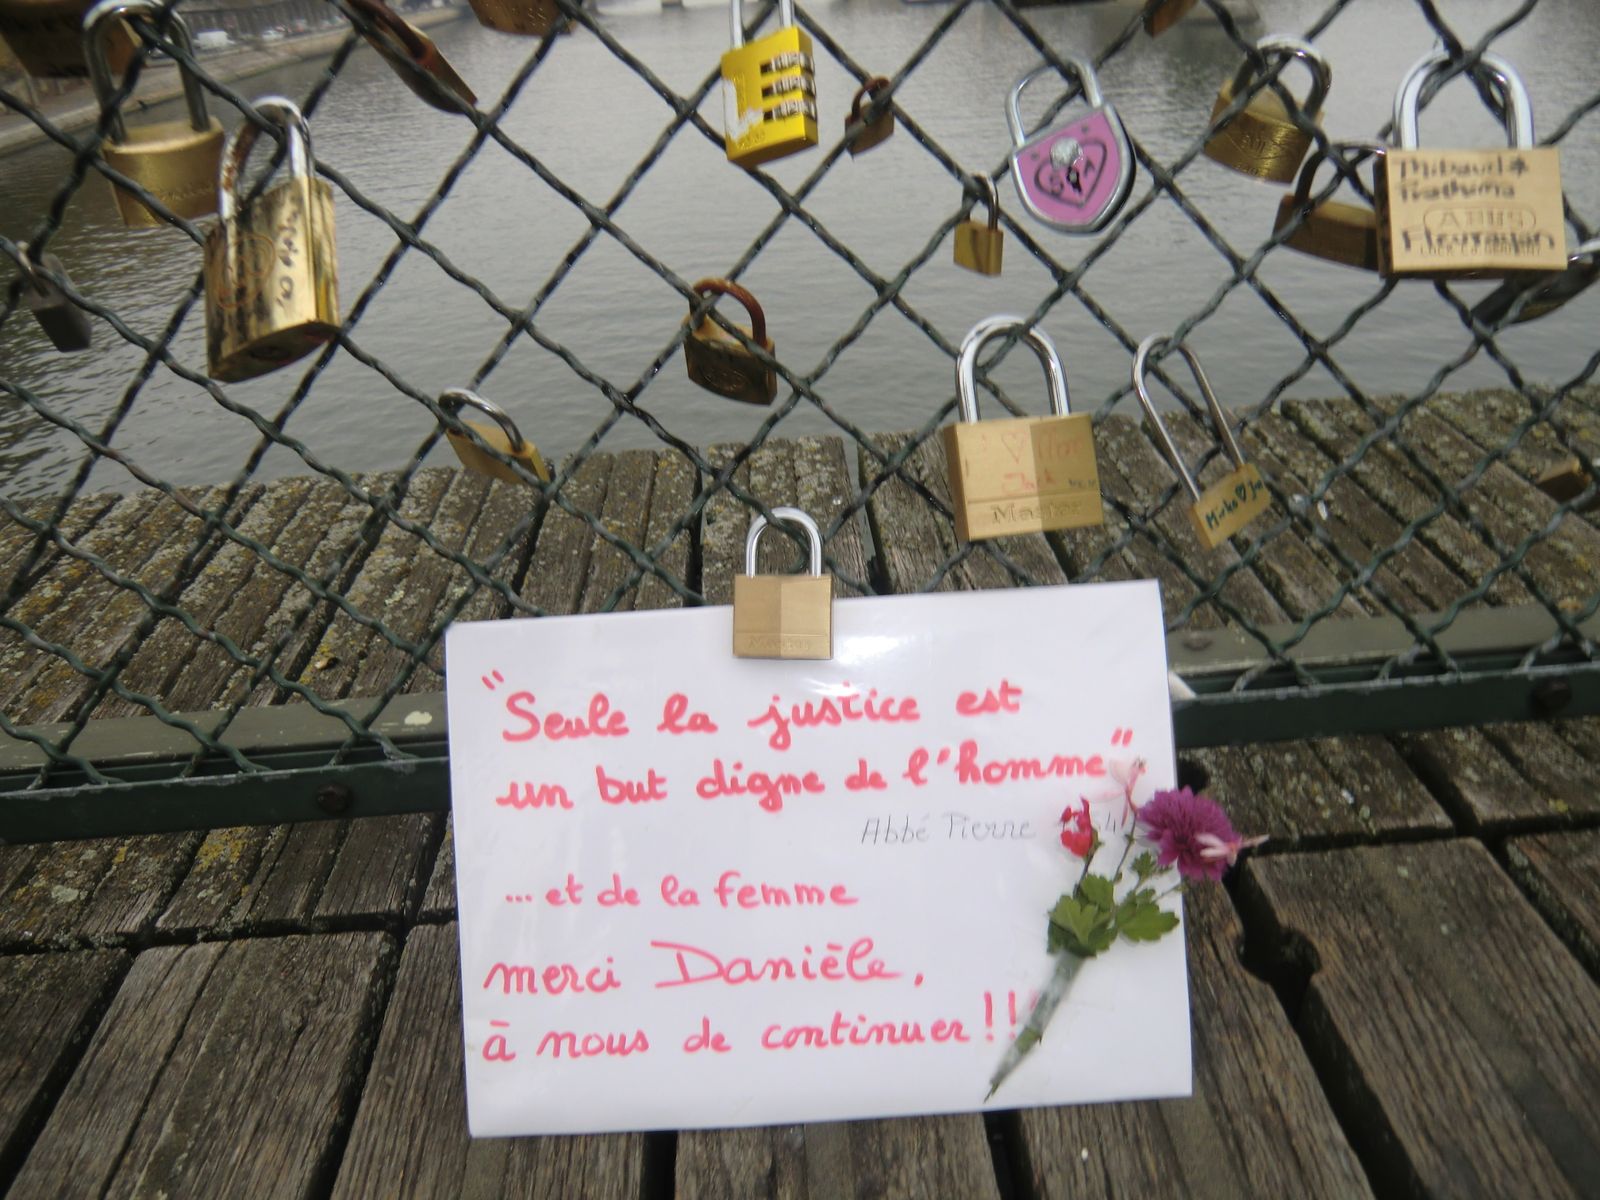 Thibaud
ABUS
Master
Mirko
Master
"Seule la justice est
un but digne de l'homme"
Abbé Pierre
... et de la femme
merci Danièle,
à nous de continuer !!!